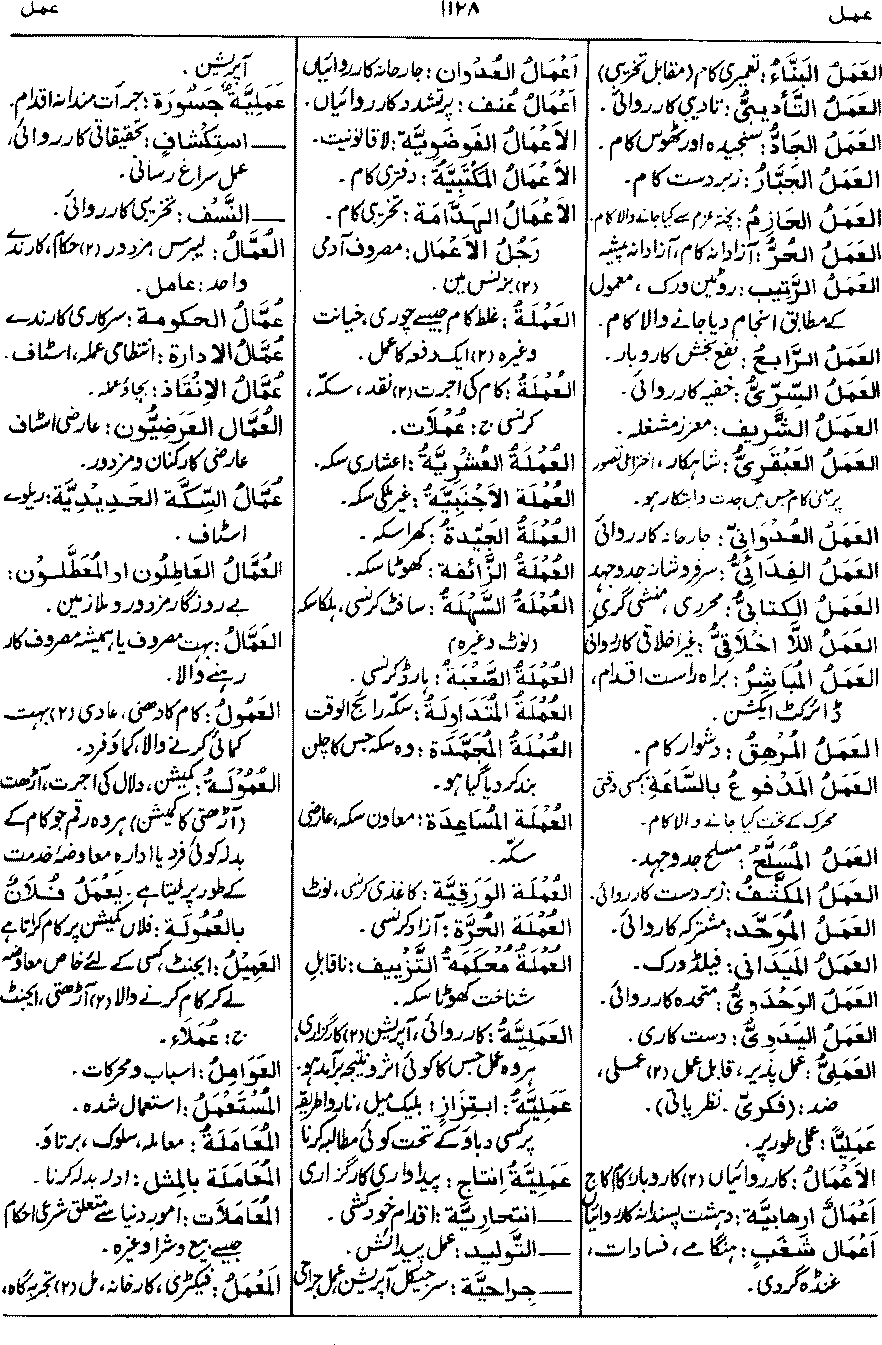 عمل
۱۱۲۸
عمل
العَمَلُ البَنَّاءُ: تعمیری کام (مقابل تخریبی)
العَمَلُ التَّأدیبیُّ: تادیبی کارروائی۔
العَمَلُ الجَادُّ: سنجیدہ اور ٹھوس کام۔
العَمَلُ الجَبَّارُ: زبردست کام۔
العَمَلُ الحَازِمُ: پختہ عزم سے کیا جانے والا کام۔
العَمَلُ الحُرُّ: آزادانہ کام، آزادانہ پیشہ
العَمَلُ الرَّتِیبُ: روٹین ورک، معمول
کے مطابق انجام دیا جانے والا کام۔
العَمَلُ الرَّابِحُ: نفع بخش کاروبار۔
العَمَلُ السِّرِّیُّ: خفیہ کارروائی۔
العَمَلُ الشَّرِیفُ: معزز مشغلہ۔
العَمَلُ العَبْقَرِیُّ: شاہکار، اختراعی تصور
پر مبنی کام جس میں جدت وابتکار ہو۔
العَمَلُ العُدْوَانیُّ: جارحانہ کارروائی
العَمَلُ الفِدَائیُّ: سرفروشانہ جدوجہد
العَمَلُ الکتابیُّ: محرری، منشی گری
العَمَلُ اللَّا اَخْلَاقیُّ: غیر اخلاقی کارروائی
العَمَلُ المُبَاشِرُ: براہ راست اقدام،
ڈائرکٹ ایکشن۔
العَمَلُ المُرْهِقُ: دشوار کام۔
العَمَلُ المَدْفوعُ بالسَّاعَةِ: کسی وقتی
محرک کے تحت کیا جانے والا کام۔
العَمَلُ المُسَلَّحُ: مسلح جدوجہد۔
العَمَلُ المُکَثَّفُ: زبردست کارروائی۔
العَمَلُ المُوَحَّد: مشترکہ کارروائی۔
العَمَلُ المَیدَانی: فیلڈ ورک۔
العَمَلُ الوَحْدَوِیُّ: متحدہ کارروائی۔
العَمَلُ الیَدَوِیُّ: دست کاری۔
العَمَلِیُّ: عمل پذیر، قابل عمل (۲) عملی،
ضد: (فکریّ۔ نظریاتی)۔
عَمَلِیًّا: عملی طور پر۔
الاَعْمَالُ: کارروائیاں (۲) کاروبار، کام کاج
اَعْمَالٌ اِرهابِیَّة: دہشت پسندانہ کارروائیاں
اَعْمَال شَغَبٍ: ہنگامے، فسادات،
غنڈہ گردی۔
اَعْمَالُ العُدْوان: جارحانہ کارروائیاں
اَعْمَالُ عُنف: پرتشدد کارروائیاں۔
الاَعْمَالُ الفَوضَوِیَّة: لاقانونیت۔
الاَعْمَالُ المَکْتَبِیَّةُ: دفتری کام۔
الاَعْمَالُ الهَدَّامَة: تخریبی کام۔
رَجُلُ الاَعْمَال: مصروف آدمی
(۲) بزنس مین۔
العَمْلَةُ: غلط کام جیسے چوری، خیانت
وغیرہ (۲) ایک دفعہ کا عمل۔
العُمْلَةُ: کام کی اجرت (۲) نقد، سکہ،
کرنسی ج: عُمُلَات۔
العُمْلَةُ العُشْرِیَّةُ: اعشاری سکہ۔
العُمْلَةُ الاَجْنَبِیَّةُ: غیر ملکی سکہ۔
العُمْلَةُ الجَیِّدَةُ: کھرا سکہ۔
العُمْلَةُ الزَّائفَة: کھوٹا سکہ۔
العُمْلَةُ السَّهْلَة: سافٹ کرنسی، ہلکا سکہ
(نوٹ وغیرہ)
العُمْلَةُ الصَّعْبَةُ: ہارڈ کرنسی۔
العُمْلَةُ المُتَدَاوَلَةُ: سکہ رائج الوقت
العُمْلَةُ المُجَمَّدَةُ: وہ سکہ جس کا چلن
بند کر دیا گیا ہو۔
العُمْلَة المُسَاعِدَة: معاون سکہ، عارضی
سکہ۔
العُمْلَة الوَرَقِیَّة: کاغذی کرنسی، نوٹ
العُمْلَة الحُرَّة: آزاد کرنسی۔
العُمْلَةُ مُحْکَمَةُ التَّزْییف: ناقابل
شناخت کھوٹا سکہ۔
العَمَلِیَّةُ: کارروائی، آپریشن (۲) کارگزاری،
ہر وہ عمل جس کا کوئی اثر ونتیجہ برآمد ہو۔
عَمَلِیَّةُ: ابتِزَازٍ: بلیک میل، ناروا طریقہ
پر کسی دباؤ کے تحت کوئی مطالبہ کرنا
عَمَلِیَّةُ اِنتَاج: پیداواری کارگزاری
ــــ انتحارِیَّة: اقدام خودکشی۔
ــــ التَّولید: عمل پیدائش۔
ــــ جِراحِیَّة: سرجیکل آپریشن، عمل جراحی
آپریشن۔
عَمَلِیَّةٌ جَسُورَة: جرأت مندانہ اقدام۔
ــــ استِکْشَافٍ: تحقیقاتی کارروائی،
عمل سراغ رسانی۔
ــــ النَّسْف: تخریبی کارروائی۔
العُمَّالُ: لیبرس، مزدور (۲) حکام، کارندے
واحد: عامل۔
عُمَّالُ الحکومة: سرکاری کارندے
عُمَّالُ الادارة: انتظامی عملہ، اسٹاف۔
عُمَّالُ الاِنْقَاذ: بچاؤ عملہ۔
العُمَّال العَرَضِیُّون: عارضی اسٹاف
عارضی کارکنان ومزدور۔
عُمَّالُ السِّکَّة الحَدِیدِیَّة: ریلوے
اسٹاف۔
العُمَّالُ العَاطِلُون او المُعَطَّلُون:
بے روزگار مزدور وملازمین۔
العَمَّالُ: بہت مصروف یا ہمیشہ مصروف کار
رہنے والا۔
العَمُولُ: کام کا دھنی، عادی (۲) بہت
کمائی کرنے والا، کماؤ فرد۔
العُمُولَةُ: کمیشن، دلال کی اجرت، آڑھت
(آڑھتی کا کمیشن) ہر وہ رقم جو کام کے
بدلہ کوئی فرد یا ادارہ معاوضۂ خدمت
کے طور پر لیتا ہے۔ یَعْمَلُ فُلَانٌ
بالعُمُولَة: فلاں کمیشن پر کام کرتا ہے
العَمِیْلُ: ایجنٹ، کسی کے لئے خاص معاوضہ
لے کر کام کرنے والا (۲) آڑھتی، ایجنٹ
ج: عُمَلَاء۔
العَوَامِلُ: اسباب ومحرکات۔
المُسْتَعْمَلُ: استعمال شدہ۔
المُعَامَلَةُ: معاملہ، سلوک، برتاؤ۔
المُعَامَلَة بالمِثْل: ادلہ بدلہ کرنا۔
المُعَامَلَاتُ: امور دنیا سے متعلق شرعی احکام
جیسے بیع وشرا وغیرہ۔
المَعْمَلُ: فیکٹری، کارخانہ، مل (۲) تجربہ گاہ،